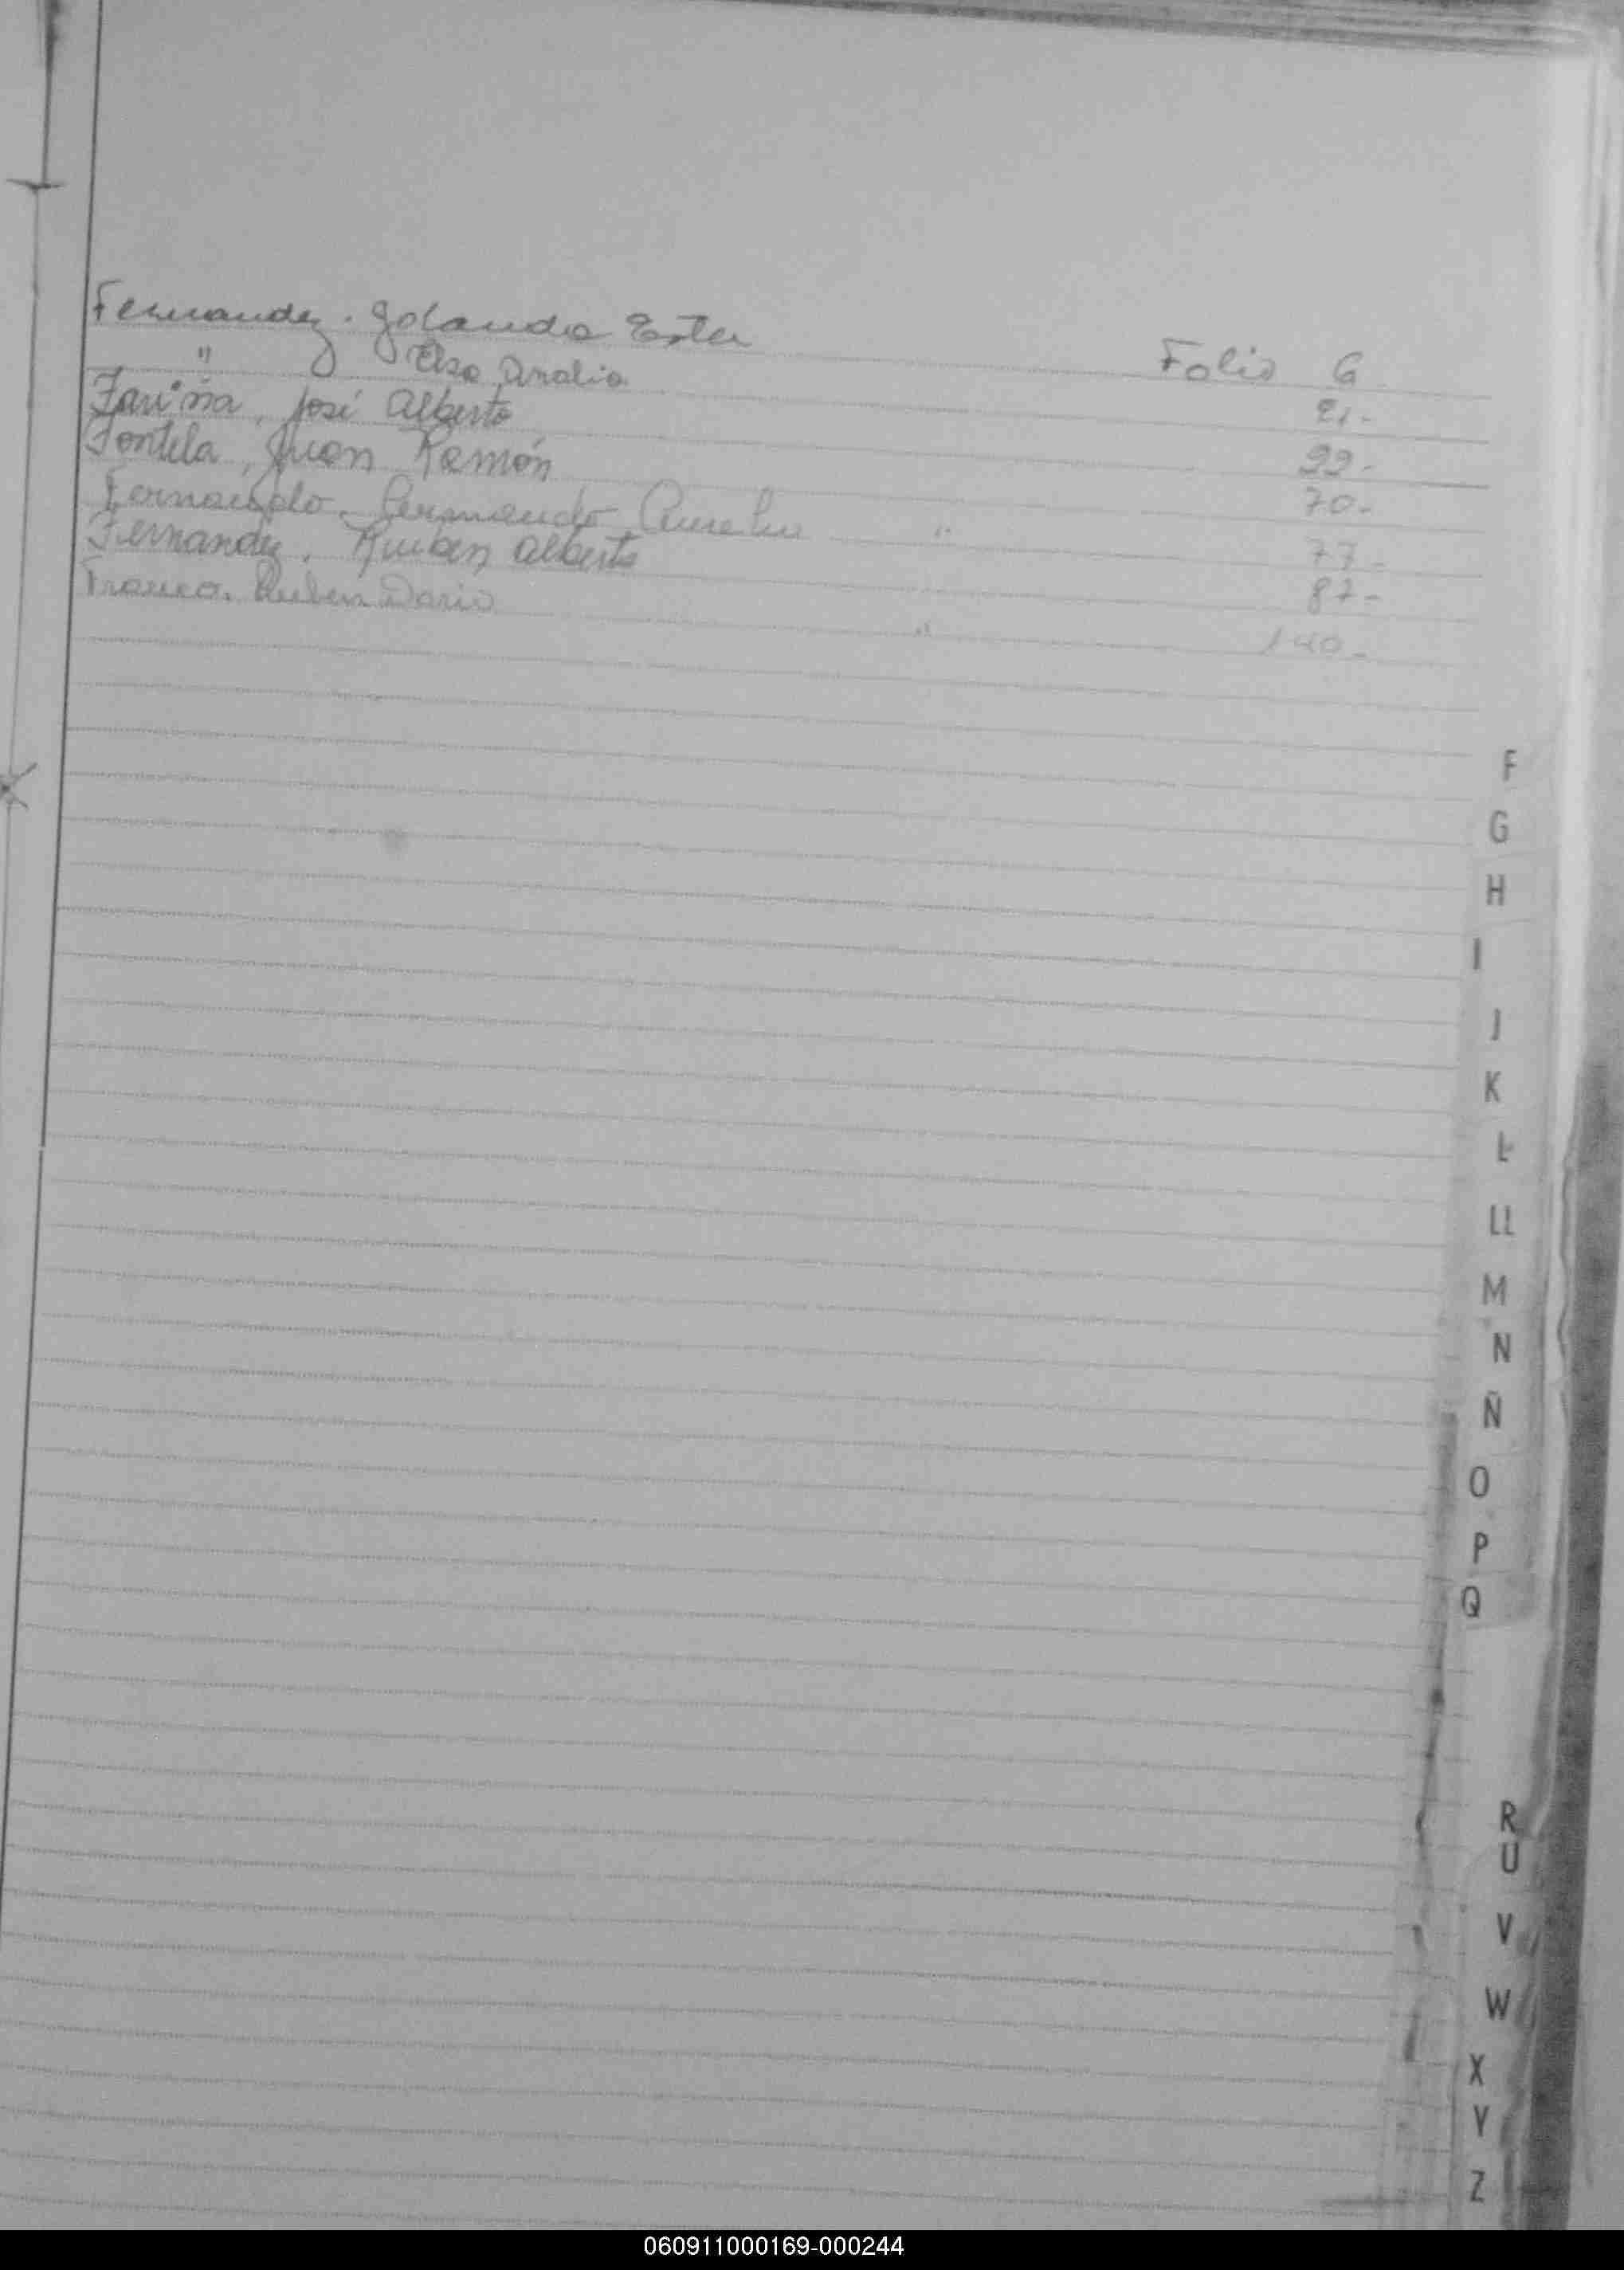 Fernandez. Yolanda Ester Folio 6
" Elsa Analia 21-
Fariña, José Alberto 99-
Fontela, Juan Ramón 70-
Armando " 77-
Fernandez, Ruben Alberto 87-
Franco. Ruben Dario " 140-
F
G
H
I
J
K
L
LL
M
N
Ñ
O
P
Q
R
U
V
W
X
Y
Z
060911000169-000244